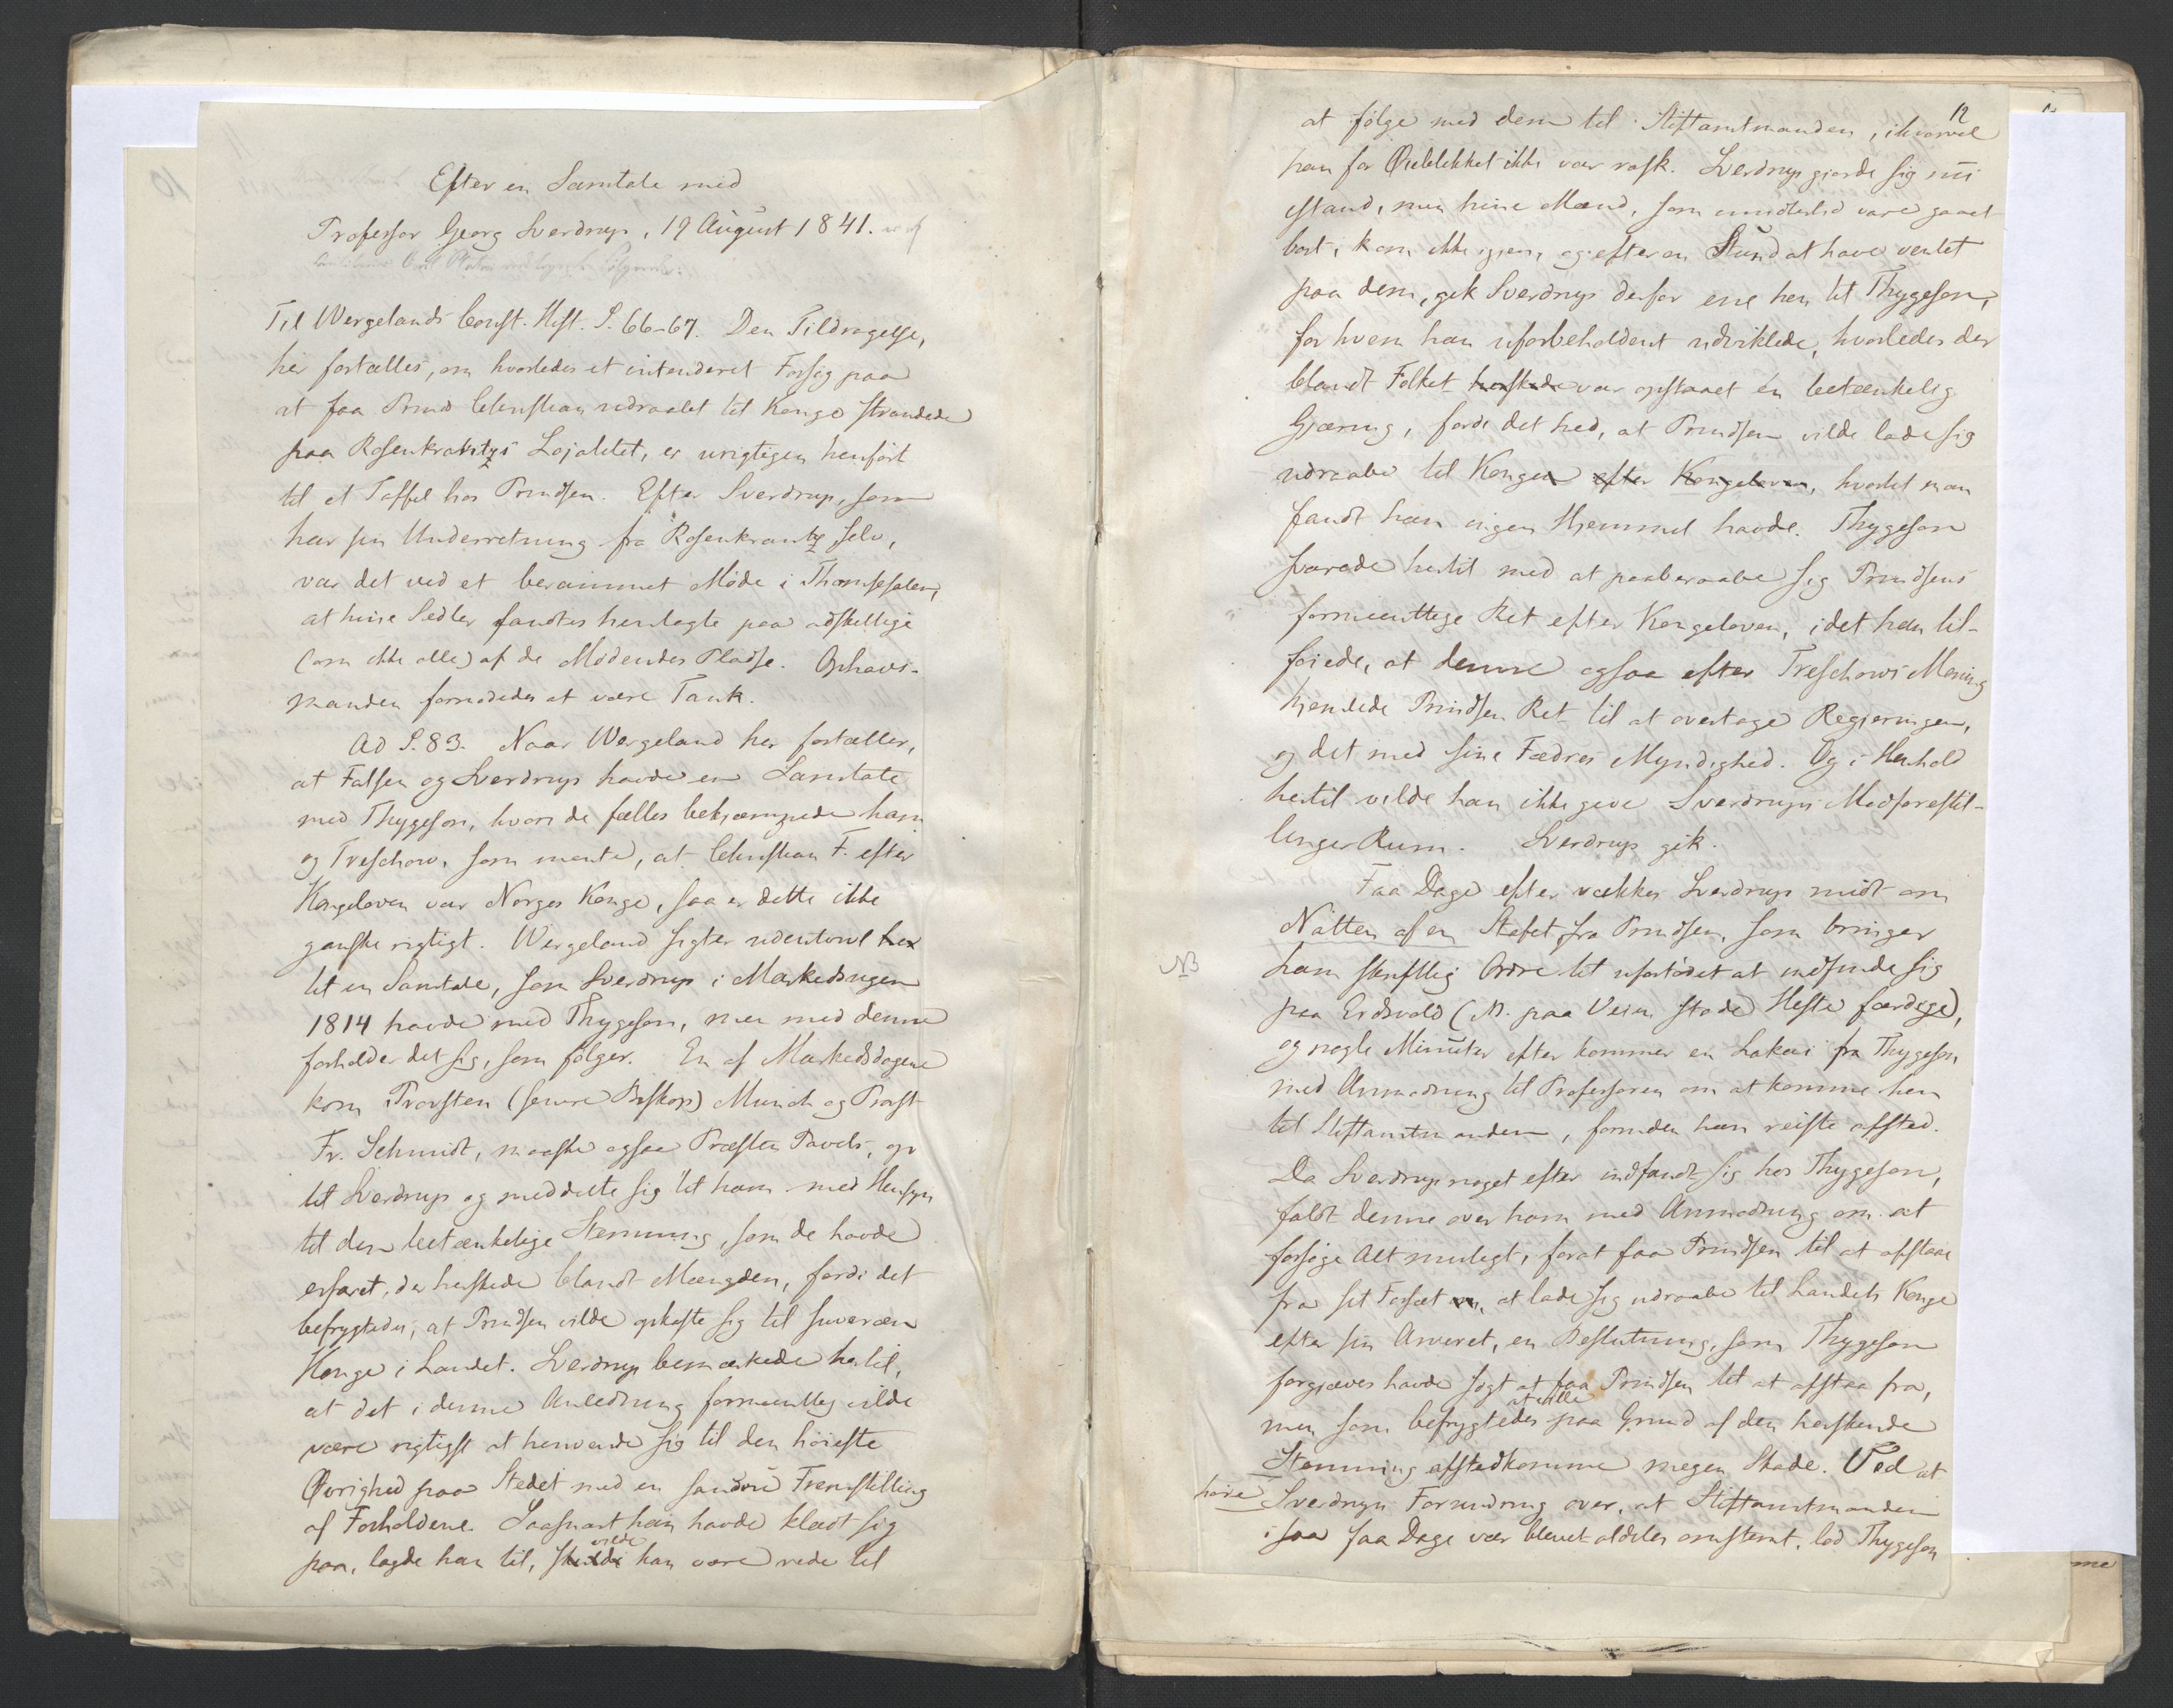 Efter en Samtale med
Professor Georg Sverdrup, 19 August 1841.
Til Wergelands Const. Hist. S. 66-67. Den Tildragelse,
her fortælles, om hvorledes et intenderet Forsøg paa
at faa Prinds Christian udraabt til Konge strandede
paa Rosenkrantzs Lojalitet, er urigtigen henført
til et Taffel hos Prindsen. Efter Sverdrup, som
har sin Underretning fra Rosenkrantz selv,
var det ved et berammet Møde i
at hine Sedler fandtes henlagte paa adskillige
(om ikke alle) af de Mødendes Pladse. Ophavs-
manden formodedes at være Tank.
Ad S. 83. Naar Wergeland her fortæller,
at Falsen og Sverdrup havde en Samtale
med Thygeson, hvori de fælles bekjæmpede ham
og Treschow, som mente, at Christian F. efter
Kongeloven var Norges Konge, saa er dette ikke
ganske rigtigt. Wergeland sigter udentvivl her
til en Samtale, som Sverdrup i Markedsugen
1814 havde med Thygeson, men med denne
forholder det sig, som følger. En af Markedsdagene
kom Provsten (senere Biskop) Munch og Provst
Fr. Schmidt, maaske ogsaa Præsten Pavels, op
til Sverdrup og meddelte sig til ham med Hensyn
til den betænkelige Stemning, som de havde
erfaret, der herskede blandt Mængden, fordi det
befrygtedes, at Prindsen vilde opkaste sig til suveræn
Konge i Landet. Sverdrup bemærkede hertil,
at det i denne Anledning formeentlig vilde
være rigtigst at henvende sig til den høieste
Øvrighed paa Stedet med en sanddru Fremstilling
af Forholdene. Saasnart han havde klædt sig
vilde
paa, lagde han til, skulde han være rede til
12
at følge med dem til Stiftamtmanden, ihvorvel
han for Øieblikket ikke var rask. Sverdrup gjorde sig nu
istand, men hine Mænd, som imidlertid vare gaaet
bort, kom ikke igjen, og efter en Stund at have ventet
paa dem, gik Sverdrup derfor ene hen til Thygeson,
for hvem han uforbeholdent udviklede, hvorledes der
blandt Folket herskede var opstaaet én betænkelig
Gjæring, fordi det hed, at Prindsen vilde lade sig
udraabe til Konge efter Kongeloven, hvortil man
fandt han ingen Hjemmel havde. Thygeson
svarede hertil med at paaberaabe sig Prindsens
formeentlige Ret efter Kongeloven, idet han til-
føiede, at denne ogsaa efter Treschows Mening
hjemlede Prindsen Ret til at overtage Regjeringen,
og det med sine Fædres Myndighed. Og i Henhold
hertil vilde han ikke give Sverdrups Modforestil-
linger Rum. Sverdrup gik.
Faa Dage efter vækkes Sverdrup midt om
Natten af en Stafet fra Prindsen, som bringer
NB
ham skriftlig Ordre til ufortøvet at indfinde sig
paa Eidsvold (NB. paa Veien stode Heste færdige),
og nogle Minuter efter kommer en Lakei fra Thygeson
med Anmodning til Professoren om at komme hen
til Stiftamtmanden, forinden han reiste afsted.
Da Sverdrup noget efter indfandt sig hos Thygeson,
faldt denne over ham med Anmodning om at
forsøge Alt muligt, forat faa Prindsen til at afstaae
fra sit Forsæt, at lade sig udraabe til Landets Konge
efter sin Arveret, en Beslutning, som Thygeson
forgjæves havde søgt at faa Prindsen til at afstaa fra,
at ville
men som befrygtedes paa Grund af den herskende
Stemning afstedkomme megen Skade. Ved at
høre Sverdrups Forundring over, at Stiftamtmanden
i saa faa Dage var blevet aldeles omstemt, lod Thygeson